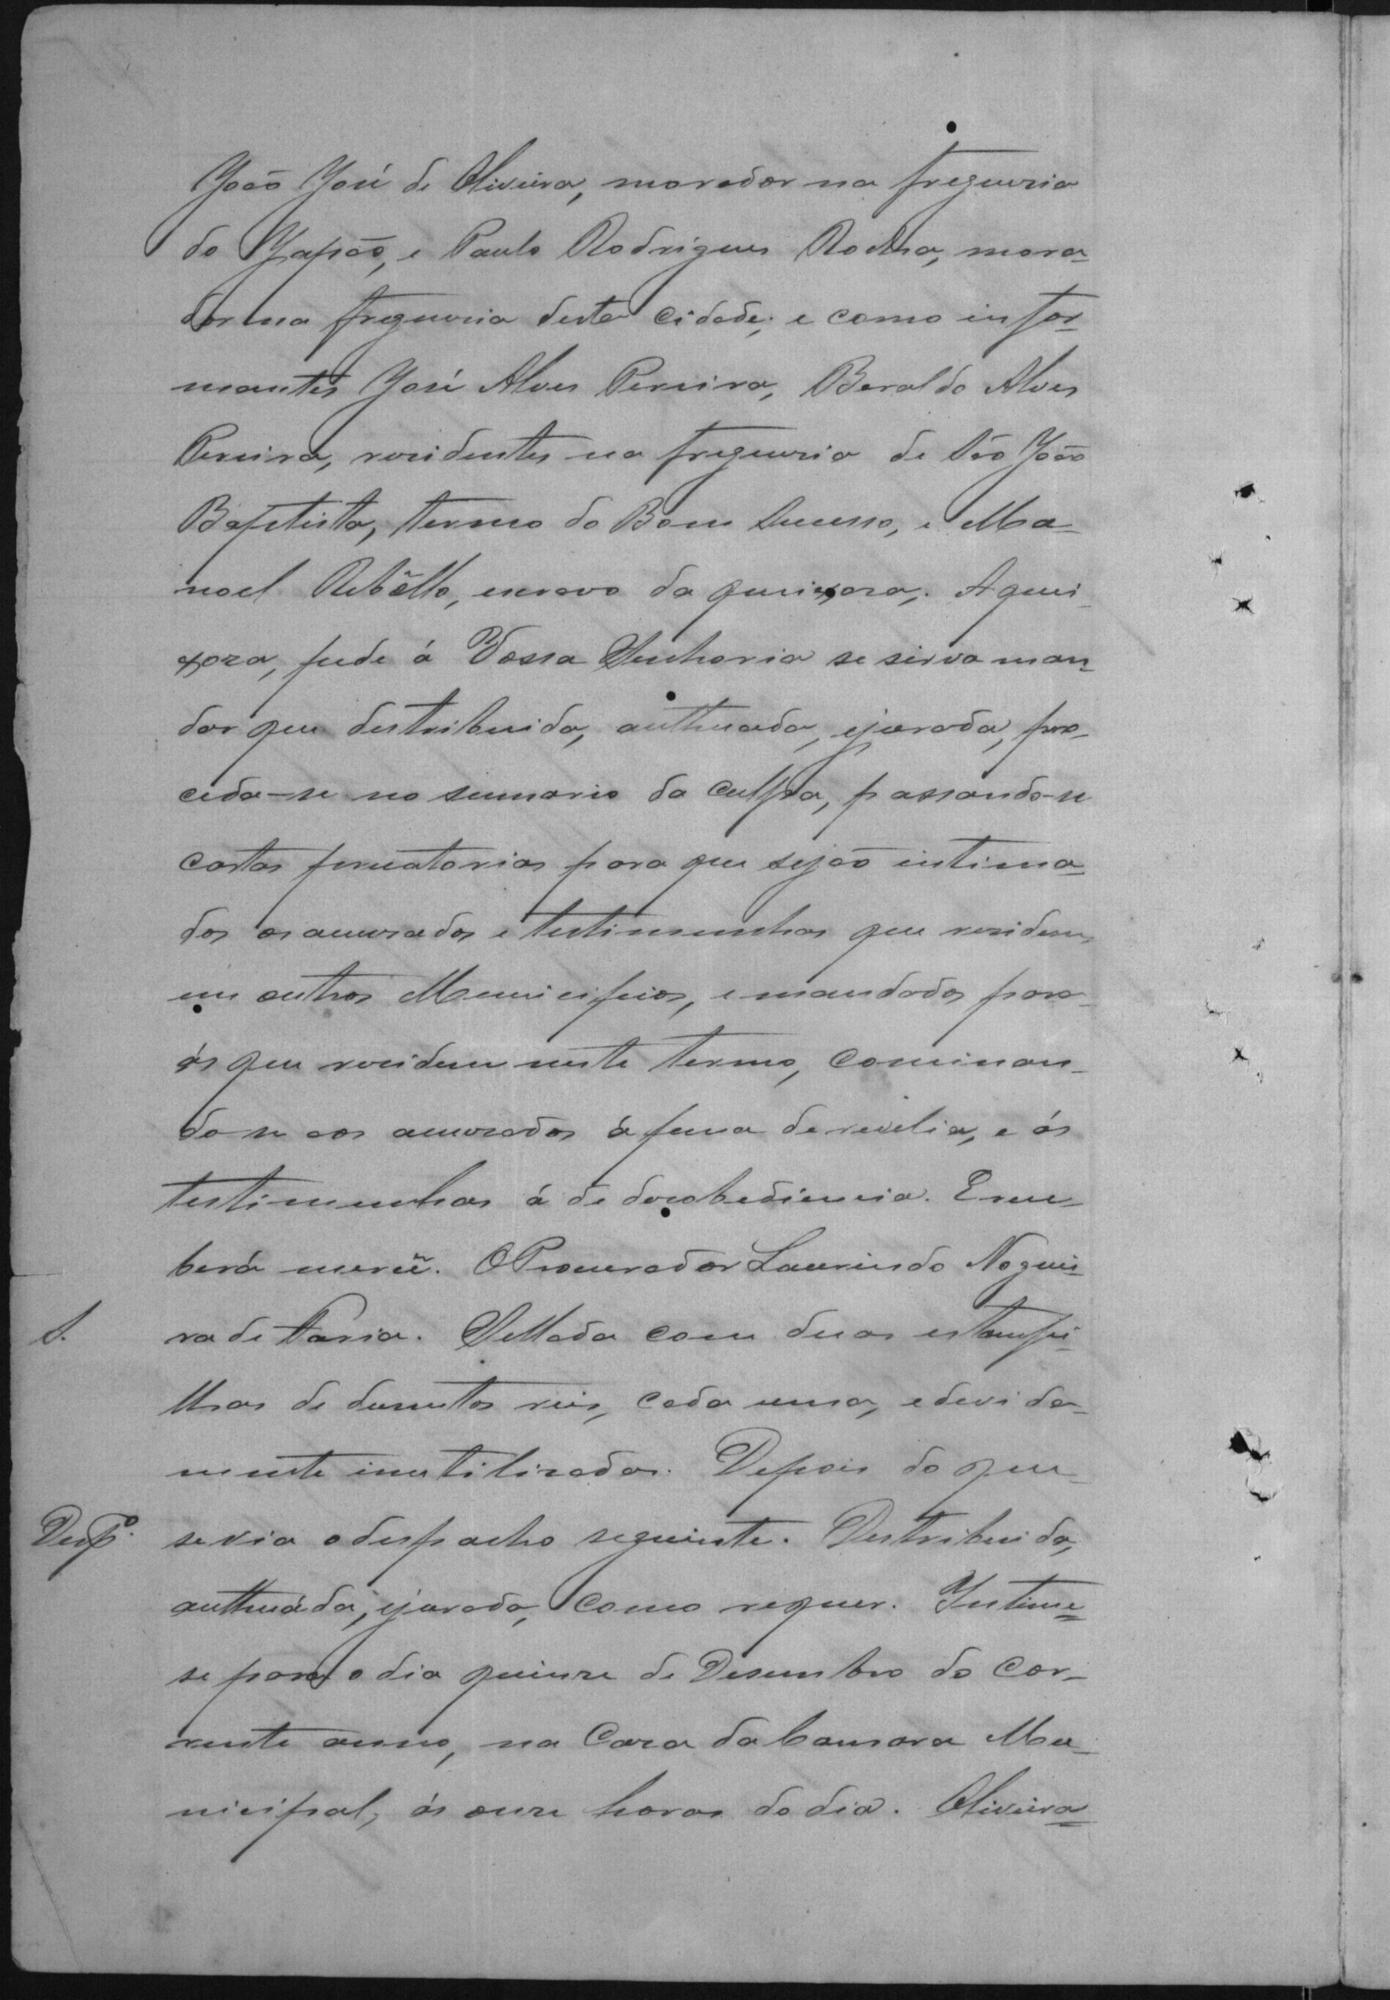 João José de Oliveira, morador na freguesia
do Japão, e Paulo Rodrigues Rocha, mora-
dor na freguesia desta cidade; e como infor-
mantes José Alves Pereira, Beraldo Alves
Pereira, residentes na freguesia de São João
Baptista, termo do Bom Successo, e Ma-
noel Rebêllo, escravo da queixosa. A quei-
xoza, pede á Vossa Senhoria se sirva man-
dar que destribuida, authuada, ejurada, pro-
ceda-se no sumario da culpa, passando-se
cartas precatorias para que sejão intima-
dos os accusados e testimunhas que residem
em outros Municipios, e mandados para
ós que residem neste termo, cominan-
do-se aos accusados á pena de revelia, e ás
testimunhas á de desobediencia. E rece-
berá mercê. O Procurador Laurindo Noguei-
S.
ra de Faria. Sellada com duas estampi-
lhas de dusentos reis, cada uma, edevida-
mente inutilisadas. Depois do que
Desp.º
se via o despacho seguinte. Destribuida,
authuáda, ejurada, como requer. Intime-
se para o dia quinze de Desembro do cor-
rente anno, na Casa da Camara Mu-
nicipal, ás onze horas do dia. Oliveira